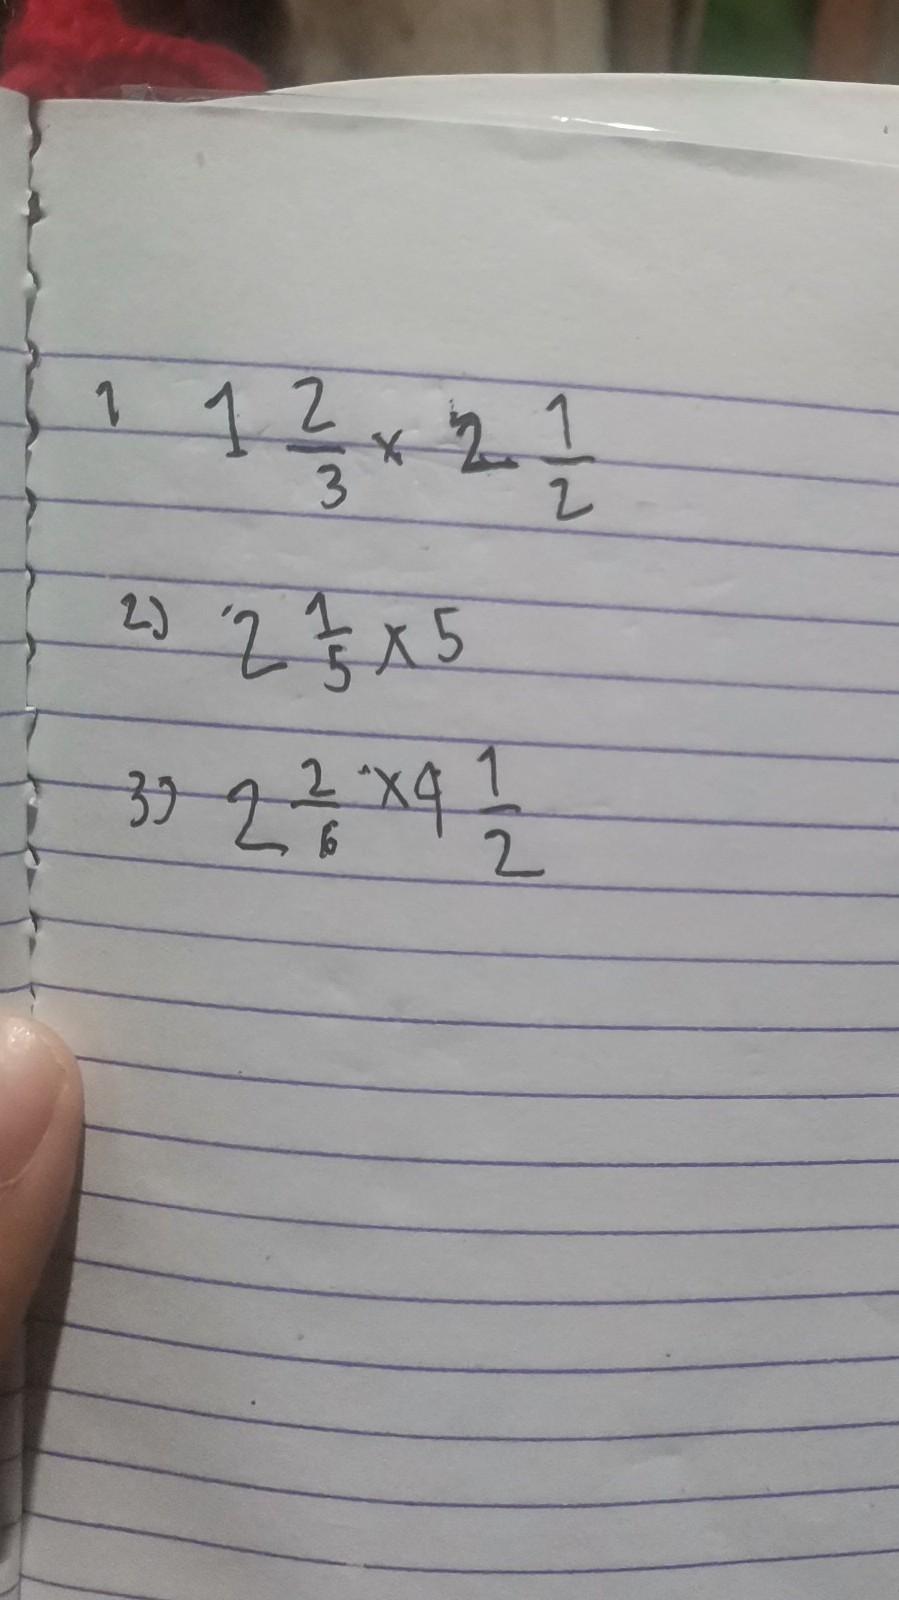 1 1 2/3 x 2 1/2
2) 2 1/5 x 5
3) 2 2/6 x 4 1/2